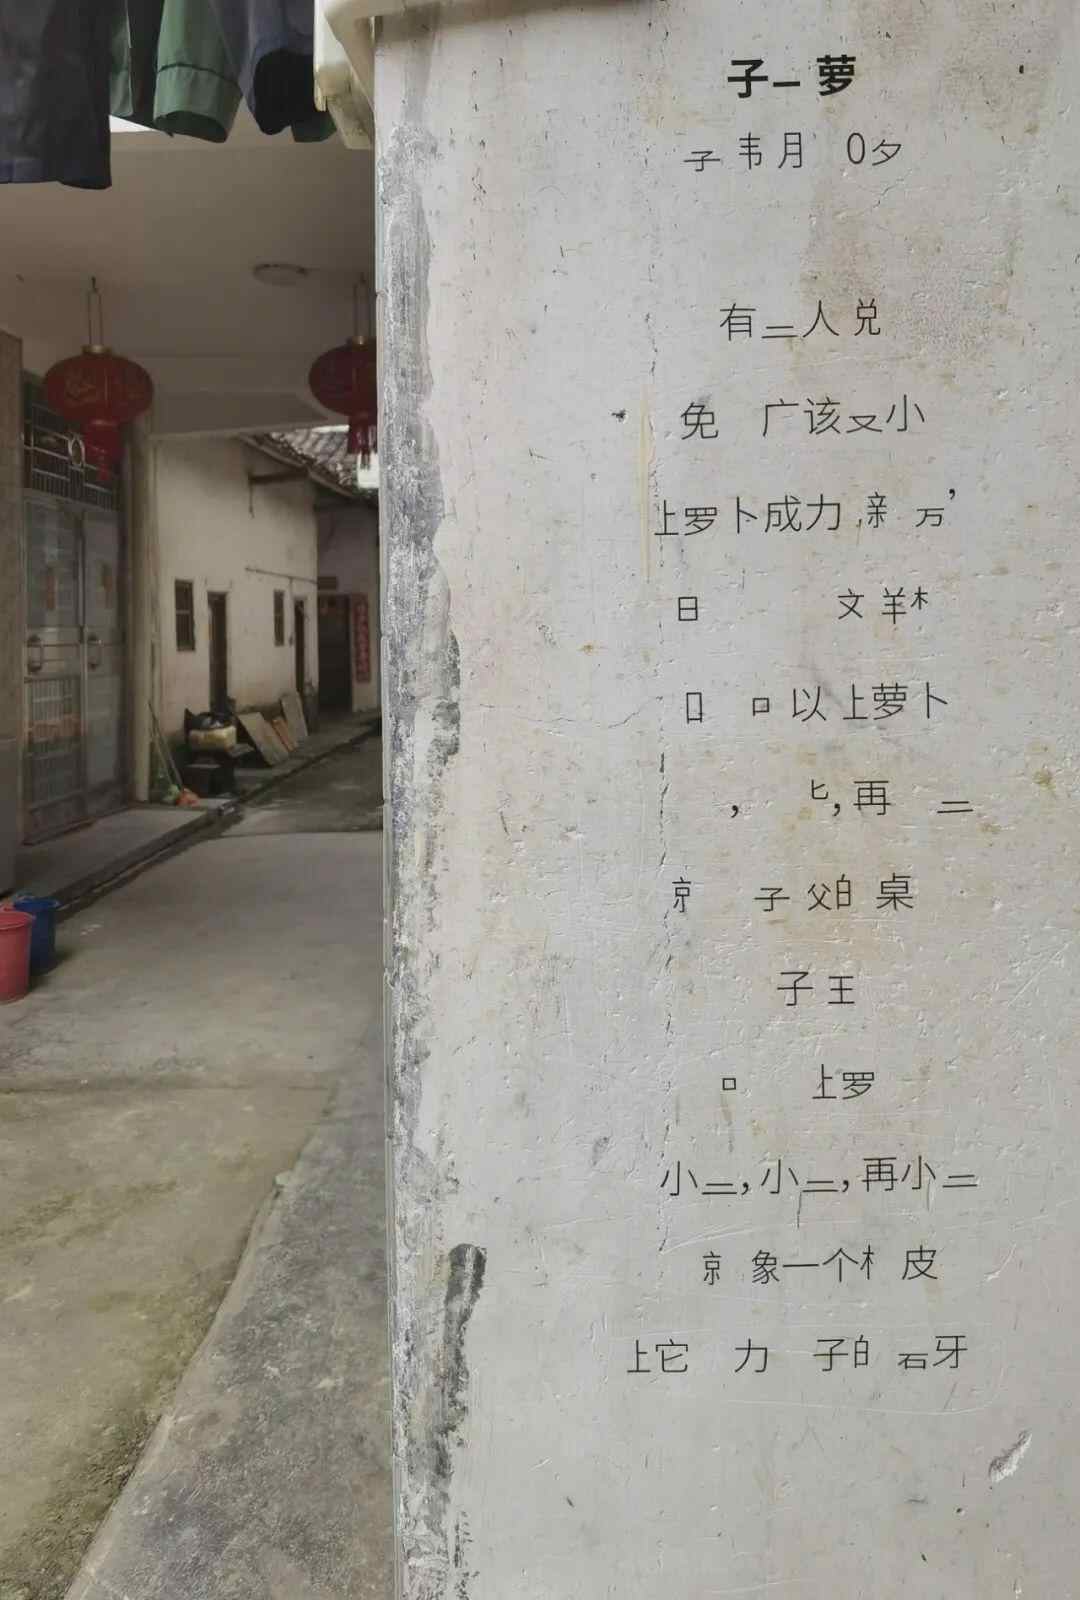 子一 萝
子 韦月 0夕
有二人 兑
免 广该又小
上罗卜成力 亲 万，
日 文 羊木
口 口以上萝卜
， 匕，再 二
京 子 父白 桌
子 王
口 上罗
小二，小二，再小二
京 象一个木 皮
上它 力 子白 石牙